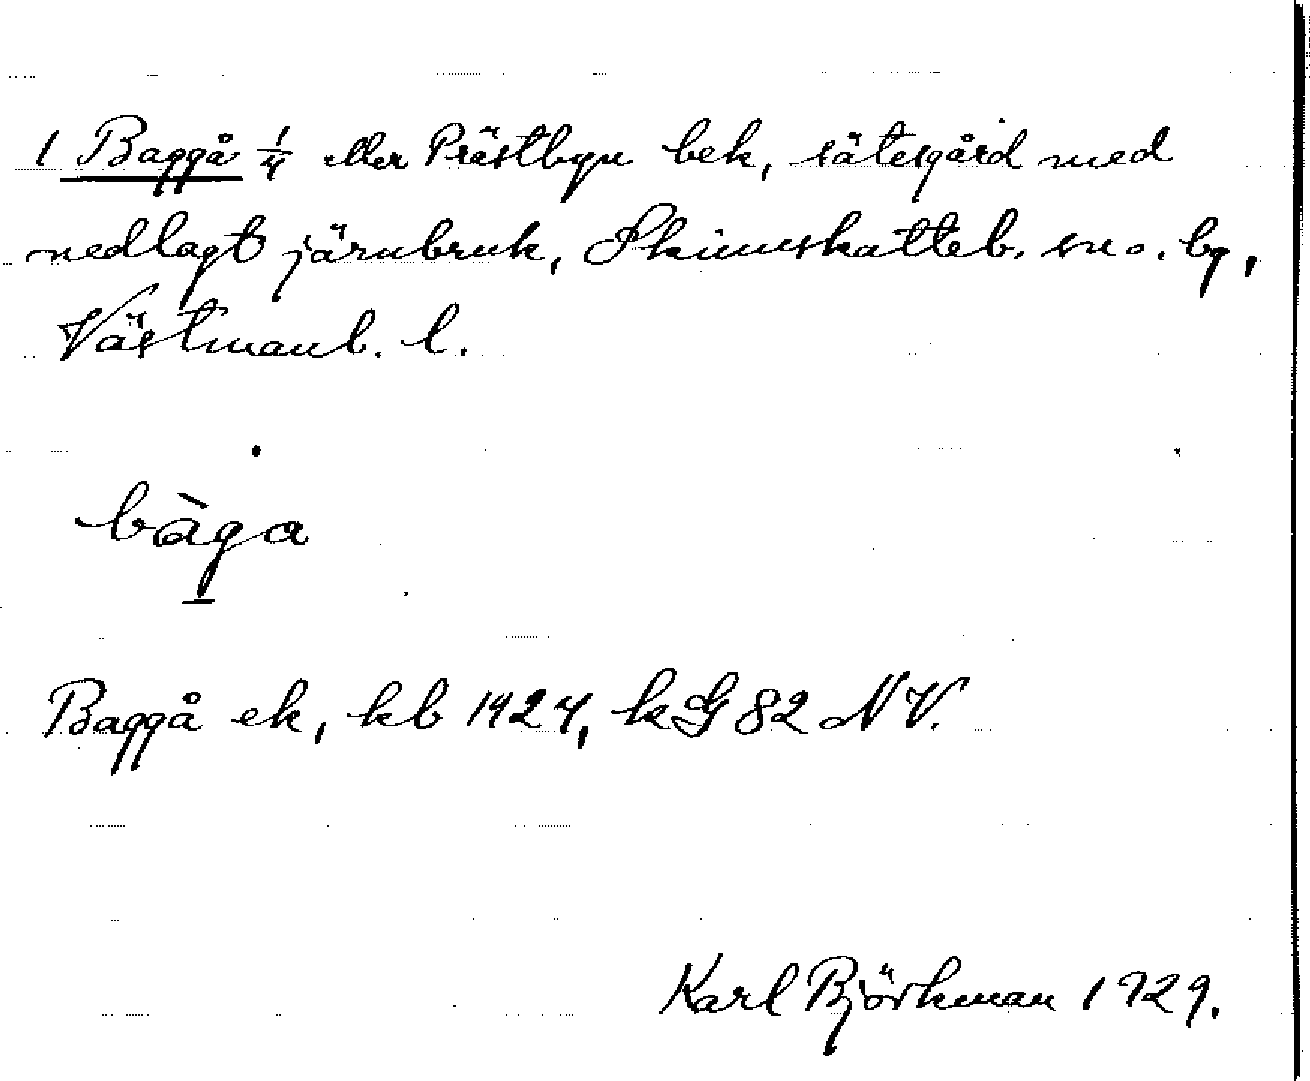 1 Baggå 1/4 eller Prästbyn bek, sätesgård med
nedlagt järnbruk, Skinnskatteb. sn o. by,
Västmanl. l.
bàga
Baggå ek, kb 1924, kG 82 NV.
Karl Björkman 1929.